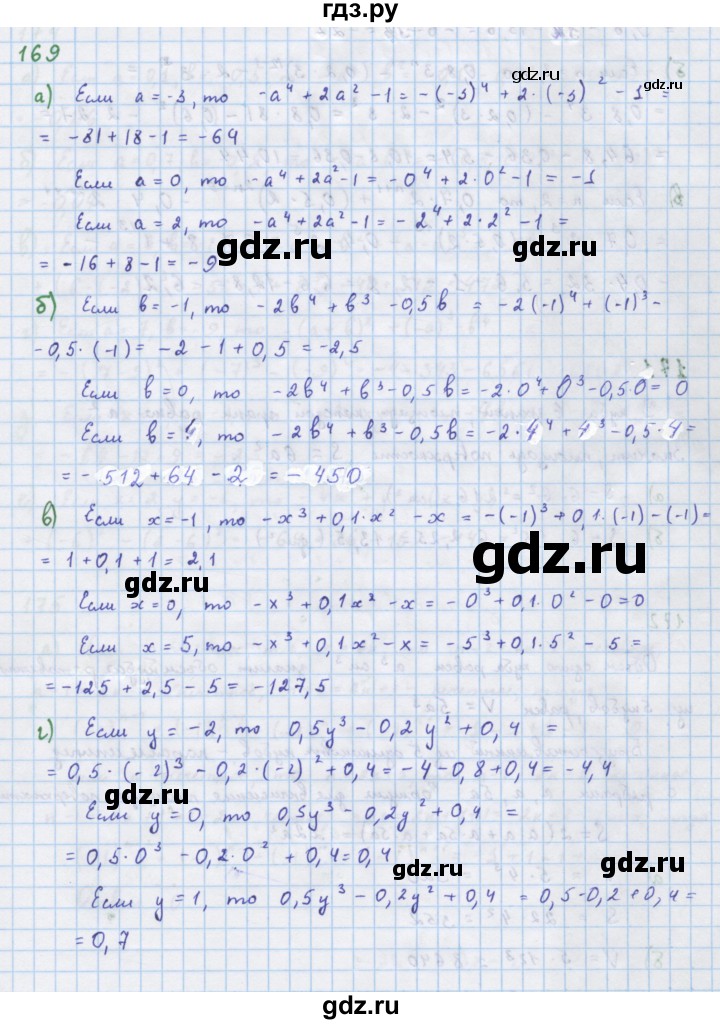 гдз.ру
169
а) Если a = -3, то -a⁴ + 2a² - 1 = -(-3)⁴ + 2·(-3)² - 1 =
= -81 + 18 - 1 = -64
Если a = 0, то -a⁴ + 2a² - 1 = -0⁴ + 2·0² - 1 = -1
Если a = 2, то -a⁴ + 2a² - 1 = -2⁴ + 2·2² - 1 =
gdz.ru
gdz.ru
= -16 + 8 - 1 = -9
б) Если b = -1, то -2b⁴ + b³ - 0,5b = -2(-1)⁴ + (-1)³ -
-0,5·(-1) = -2 - 1 + 0,5 = -2,5
Если b = 0, то -2b⁴ + b³ - 0,5b = -2·0⁴ + 0³ - 0,5 0 = 0
Если b = 4, то -2b⁴ + b³ - 0,5b = -2·4⁴ + 4³ - 0,5·4 =
= -512 + 64 - 2 = -450
в) Если x = -1, то -x³ + 0,1·x² - x = -(-1)³ + 0,1·(-1) - (-1) =
gdz.ru
= 1 + 0,1 + 1 = 2,1
gdz.ru
Если x = 0, то -x³ + 0,1x² - x = -0³ + 0,1·0² - 0 = 0
Если x = 5, то -x³ + 0,1x² - x = -5³ + 0,1·5² - 5 =
gdz.ru
= -125 + 2,5 - 5 = -127,5
г) Если y = -2, то 0,5y³ - 0,2y² + 0,4 =
= 0,5·(-2)³ - 0,2·(-2)² + 0,4 = -4 - 0,8 + 0,4 = -4,4
gdz.ru
Если y = 0, то 0,5y³ - 0,2y² + 0,4 =
= 0,5·0³ - 0,2·0² + 0,4 = 0,4
gdz.ru
Если y = 1, то 0,5y³ - 0,2y² + 0,4 = 0,5 - 0,2 + 0,4 =
= 0,7
gdz.ru
gdz.ru